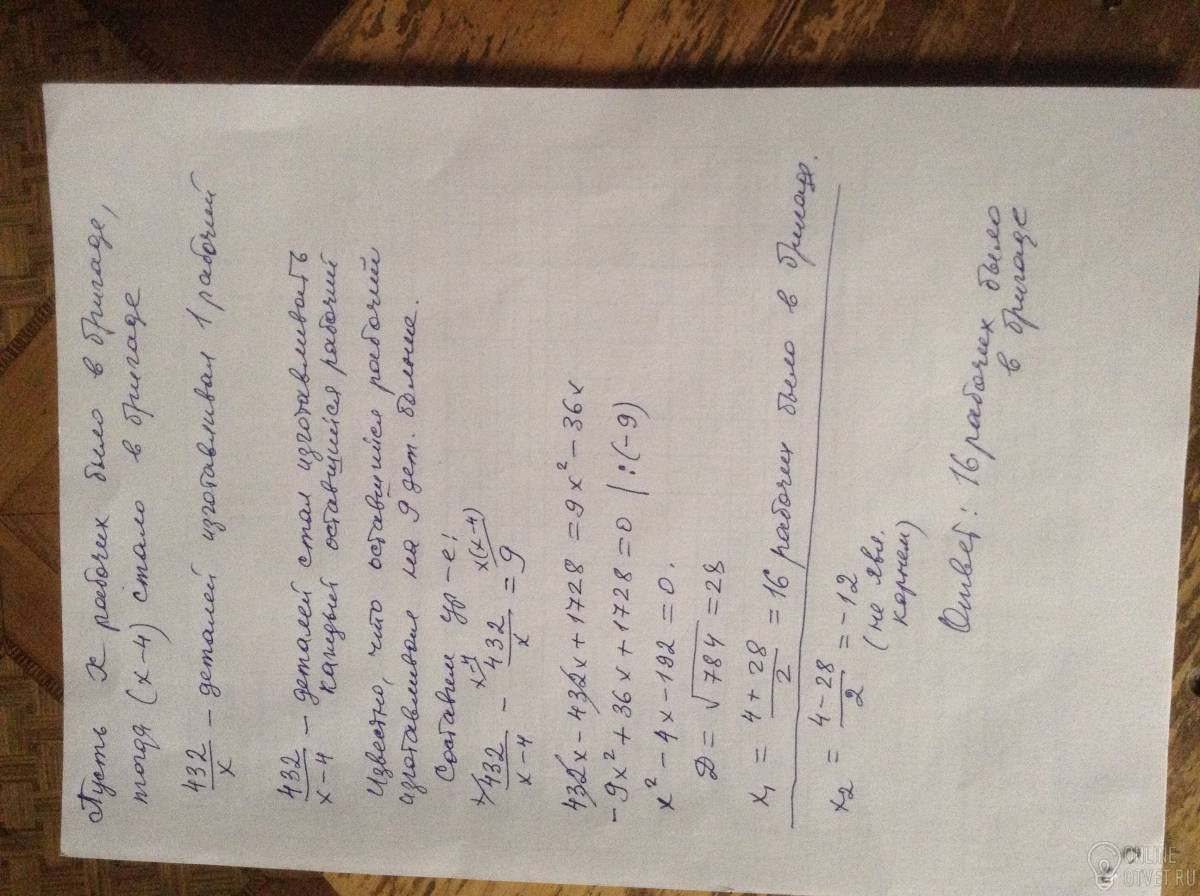 Пусть x рабочих было в бригаде,
тогда (x-4) стало в бригаде
432/x - деталей изготавливал 1 рабочий
432/(x-4) - деталей стал изготавливать
каждый оставшийся рабочий
Известно, что оставшийся рабочий
изготавливал на 9 дет. больше.
Составим ур-е:
x/432/(x-4) - x-4/432/x = 9 x(x-4)
432x - 432x + 1728 = 9x² - 36x
-9x² + 36x + 1728 = 0 | :(-9)
x² - 4x - 192 = 0.
D = √784 = 28
x₁ = (4+28)/2 = 16 рабочих было в бригаде.
x₂ = (4-28)/2 = -12
(не явл.
корнем)
Ответ: 16 рабочих было
в бригаде
ONLINE
OTVET.RU